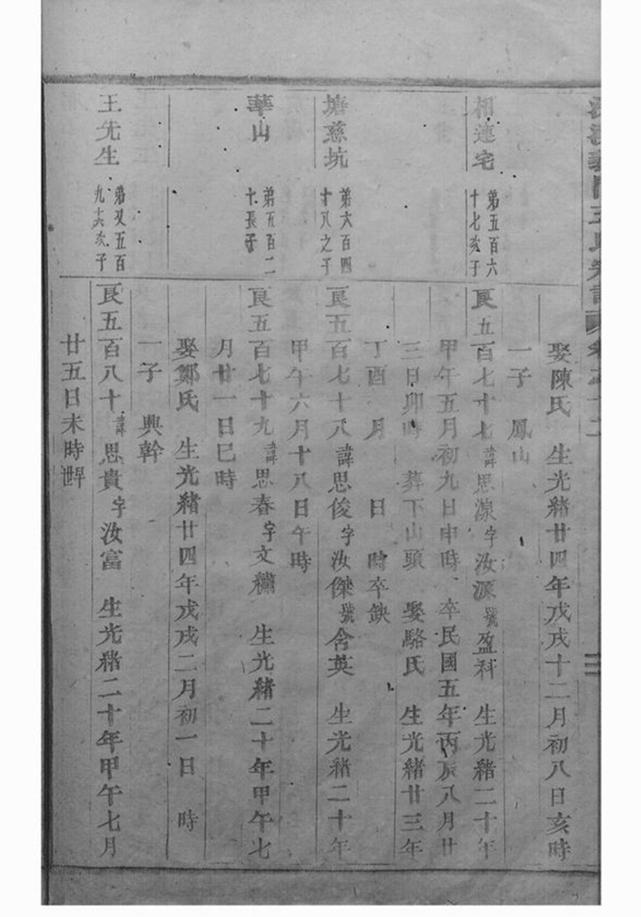 娶陳氏 生光緒廿四年戊戌十二月初八日亥時
一子 鳳山
相連宅 第五百六十七次子 良五百七十七諱思源字汝源號盈科 生光緒二十年
甲午五月初九日申時 卒民國五年丙辰八月廿
三日卯時 葬下山頭 娶駱氏 生光緒廿三年
丁酉 月 日 時卒缺
塘慈坑 第六百四十八之子 良五百七十八諱思俊字汝傑號含英 生光緒二十年
甲午六月十八日午時
華山 第五百二十長子 良五百七十九諱思春字文繡 生光緒二十年甲午七
月廿一日巳時
娶鄭氏 生光緒廿四年戊戌二月初一日 時
一子 興幹
王先生 第又五百九十六次子 良五百八十諱思貴字汝富 生光緒二十年甲午七月
廿五日未時